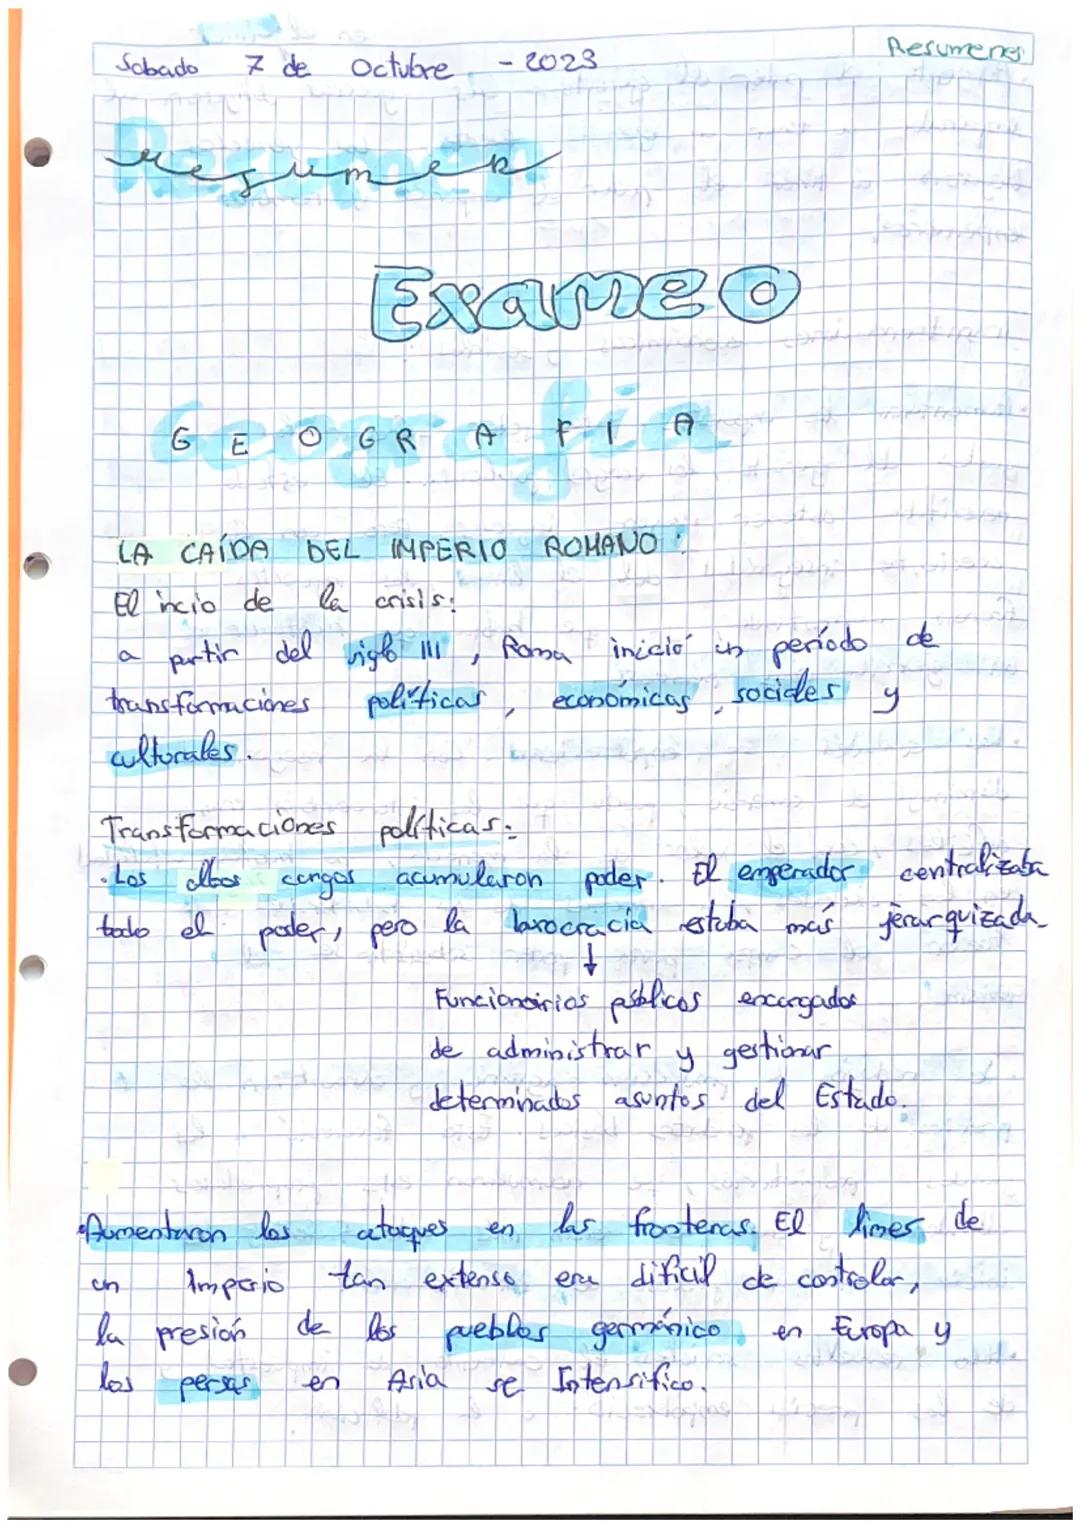 Sabado 7 de Octubre - 2023
Resumenes
Resumen
Examen
GEOGRAFIA
LA CAÍDA DEL IMPERIO ROMANO:
El incio de la crisis:
a partir del siglo III, Roma inició un período de
transformaciones políticas, económicas, sociales y
culturales.
Transformaciones políticas:
· Los altos cargos acumularon poder. El emperador centralizaba
todo el poder, pero la burocracia estaba más jerarquizada
↓
Funcionarios públicos encargados
de administrar y gestionar
determinados asuntos del Estado.
· Aumentaron los ataques en las fronteras. El limes de
un Imperio tan extenso era dificil de controlar,
la presión de los pueblos germánico en Europa y
los persas en Asia se Intensifico.